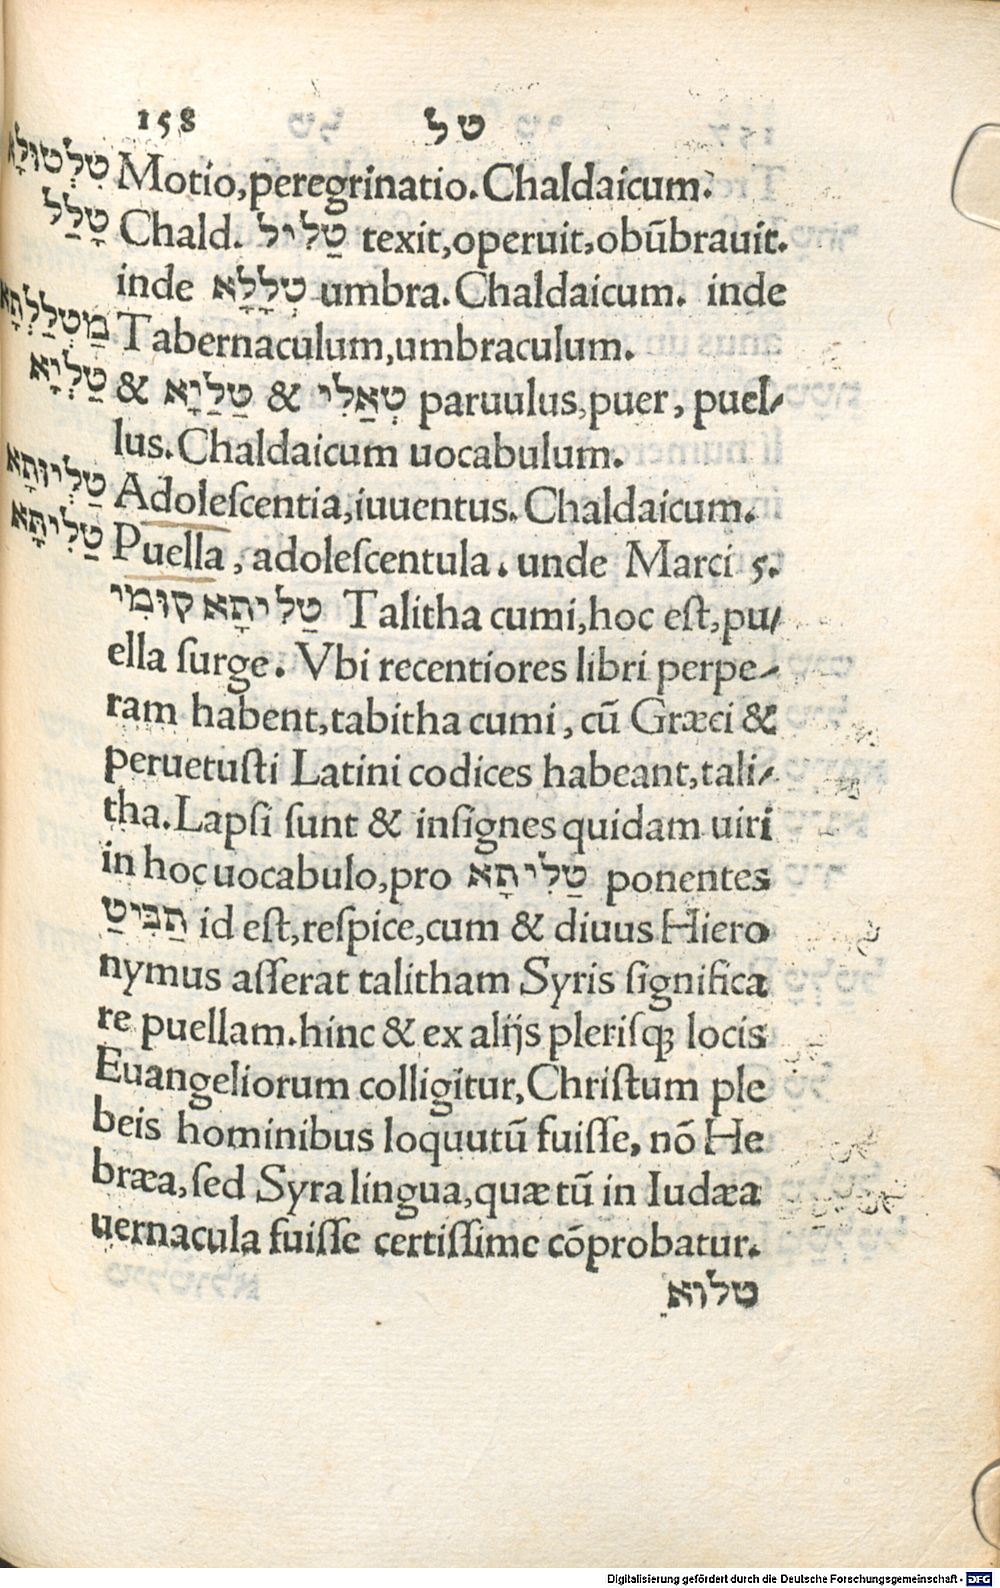 158 טל
טִלְטוּלָא Motio,peregrinatio.Chaldaicum.
טָלַל Chald. טַלִיל texit,operuit,obūbrauit.
inde טְלָלָא umbra.Chaldaicum. inde
מַטְלַלְתָּא Tabernaculum,umbraculum.
טַלְיָא & טַלַיָא & טְאַלִי paruulus,puer, puel/
lus.Chaldaicum uocabulum.
טַלְיוּתָא Adoleſcentia,iuuentus.Chaldaicum.
טַלִיתָּא Puella,adoleſcentula.unde Marci 5.
טַלִיתָא קוּמִי Talitha cumi,hoc eſt,pu/
ella ſurge. Vbi recentiores libri perpe/
ram habent,tabitha cumi,cū Græci &
peruetuſti Latini codices habeant,tali/
tha.Lapſi ſunt & inſignes quidam uiri
in hoc uocabulo,pro טַלִיתָא ponentes
חַבִּיטַ id eſt,reſpice,cum & diuus Hiero
nymus aſſerat talitham Syris ſignifica
re puellam.hinc & ex alijs pleriſqꝫ locis
Euangeliorum colligitur,Chriſtum ple
beis hominibus loquutū fuiſſe,nō He
bræa,ſed Syra lingua,quæ tū in Iudæa
uernacula fuiſſe certiſſime cōprobatur.
טלוא
Digitalisierung gefördert durch die Deutsche Forschungsgemeinschaft - DFG